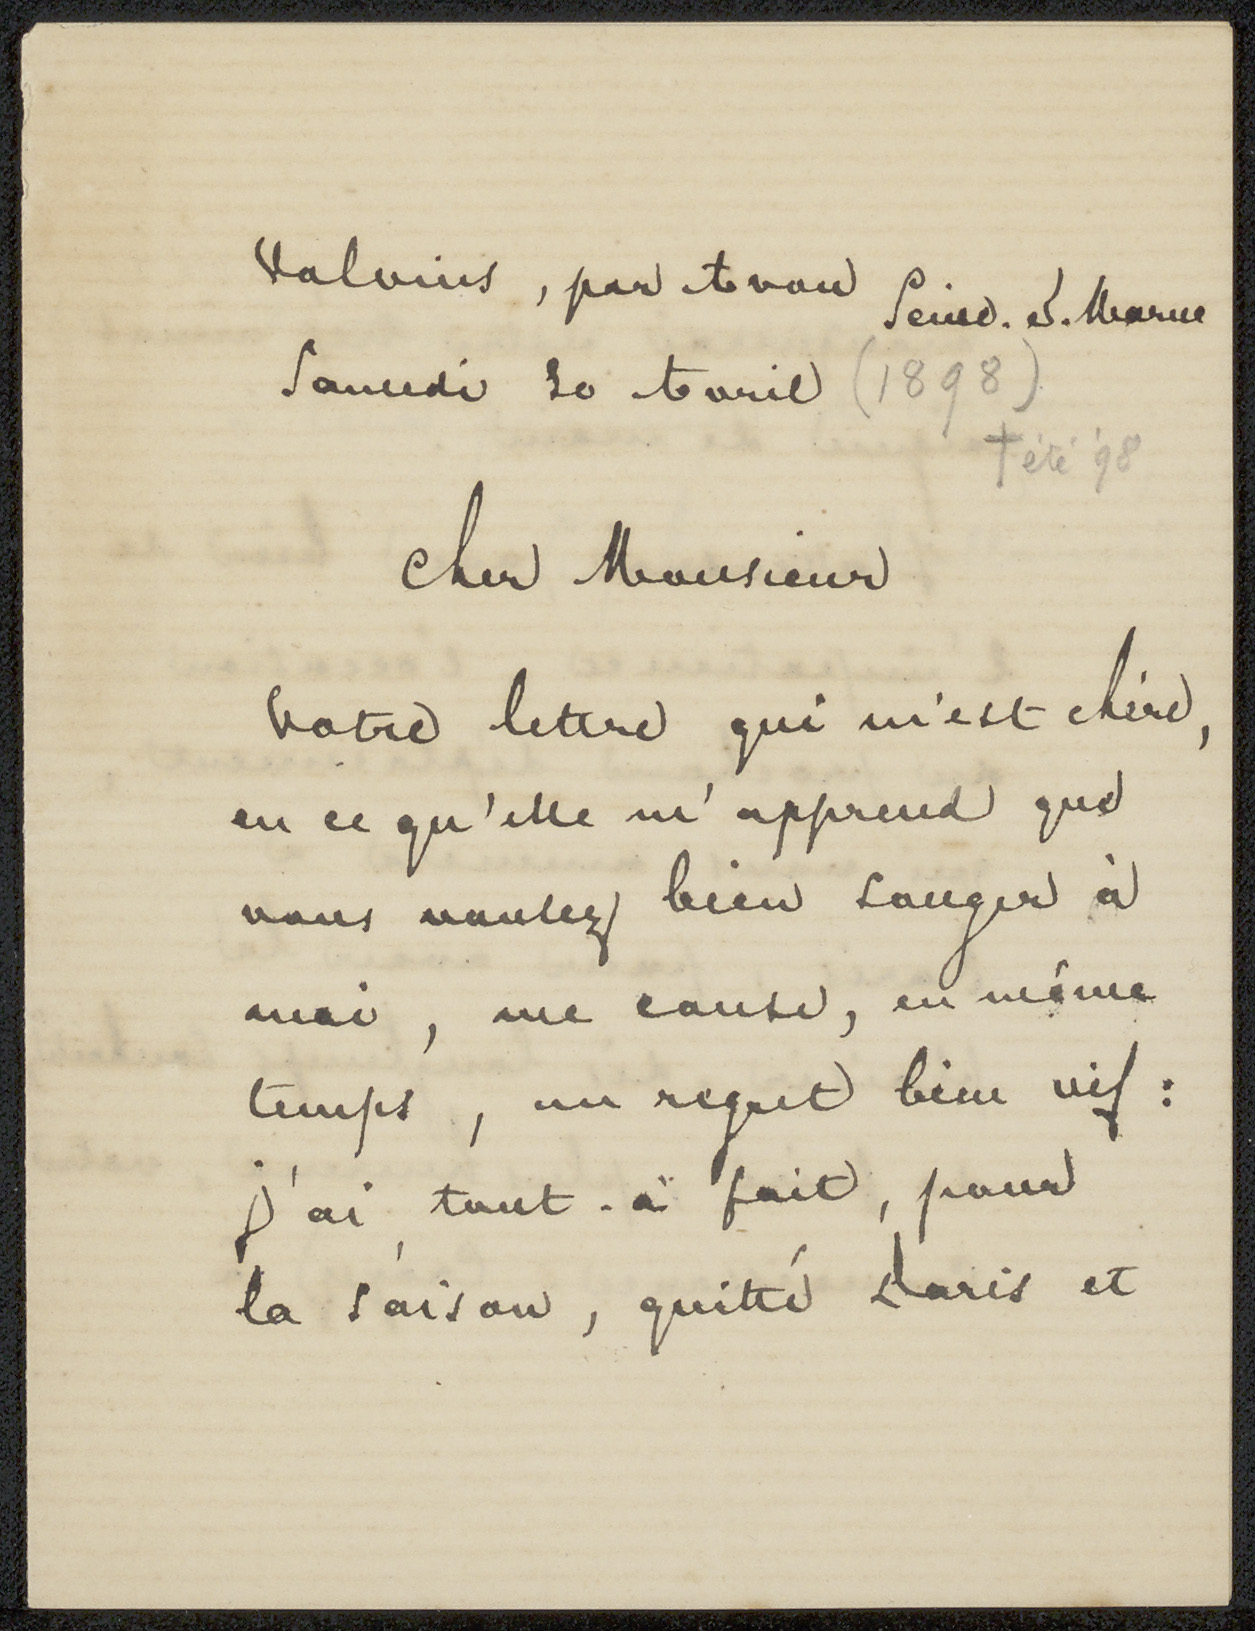 Valvins, par Avon
Seine. &. Marne
Samedi 30 Avril (1898)
† été '98
Cher Monsieur
Votre lettre qui m'est chère,
en ce qu'elle m'apprend que
vous voulez bien songer à
moi, me cause, en même
temps, un regret bien vif :
j'ai tout-à fait, pour
la saison, quitté Paris et